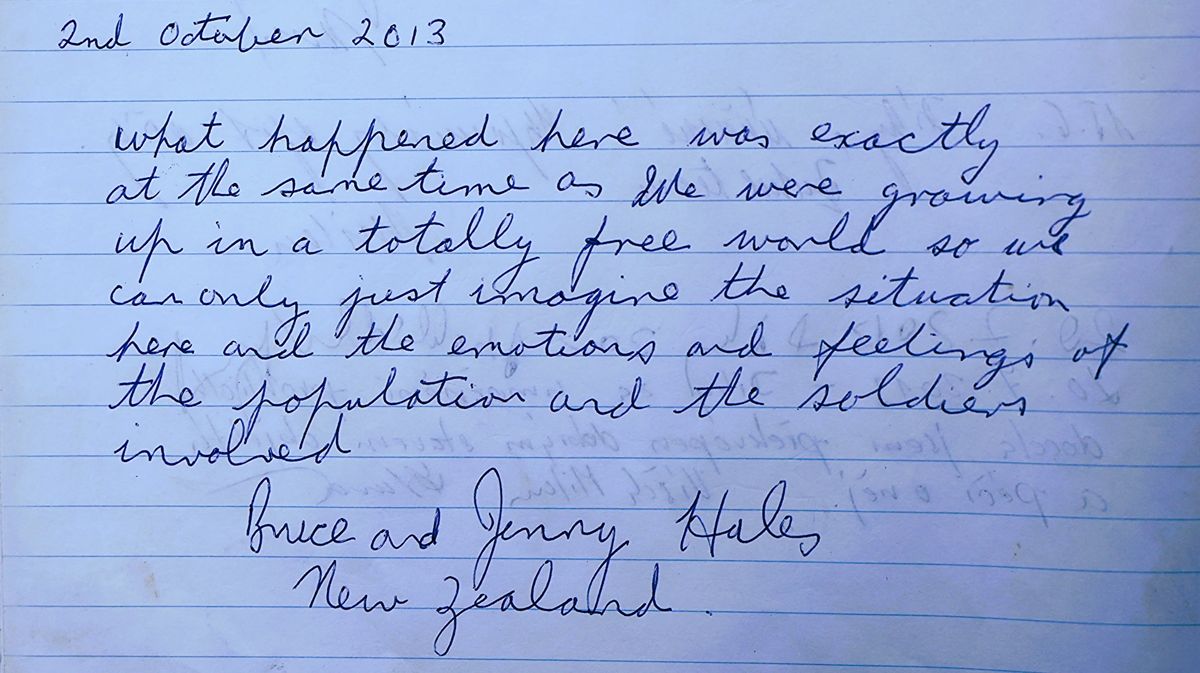 2nd October 2013
what happened here was exactly
at the same time as We were growing
up in a totally free world so we
can only just imagine the situation
here and the emotions and feelings of
the population and the soldiers
involved
Bruce and Jenny Hales
New Zealand.